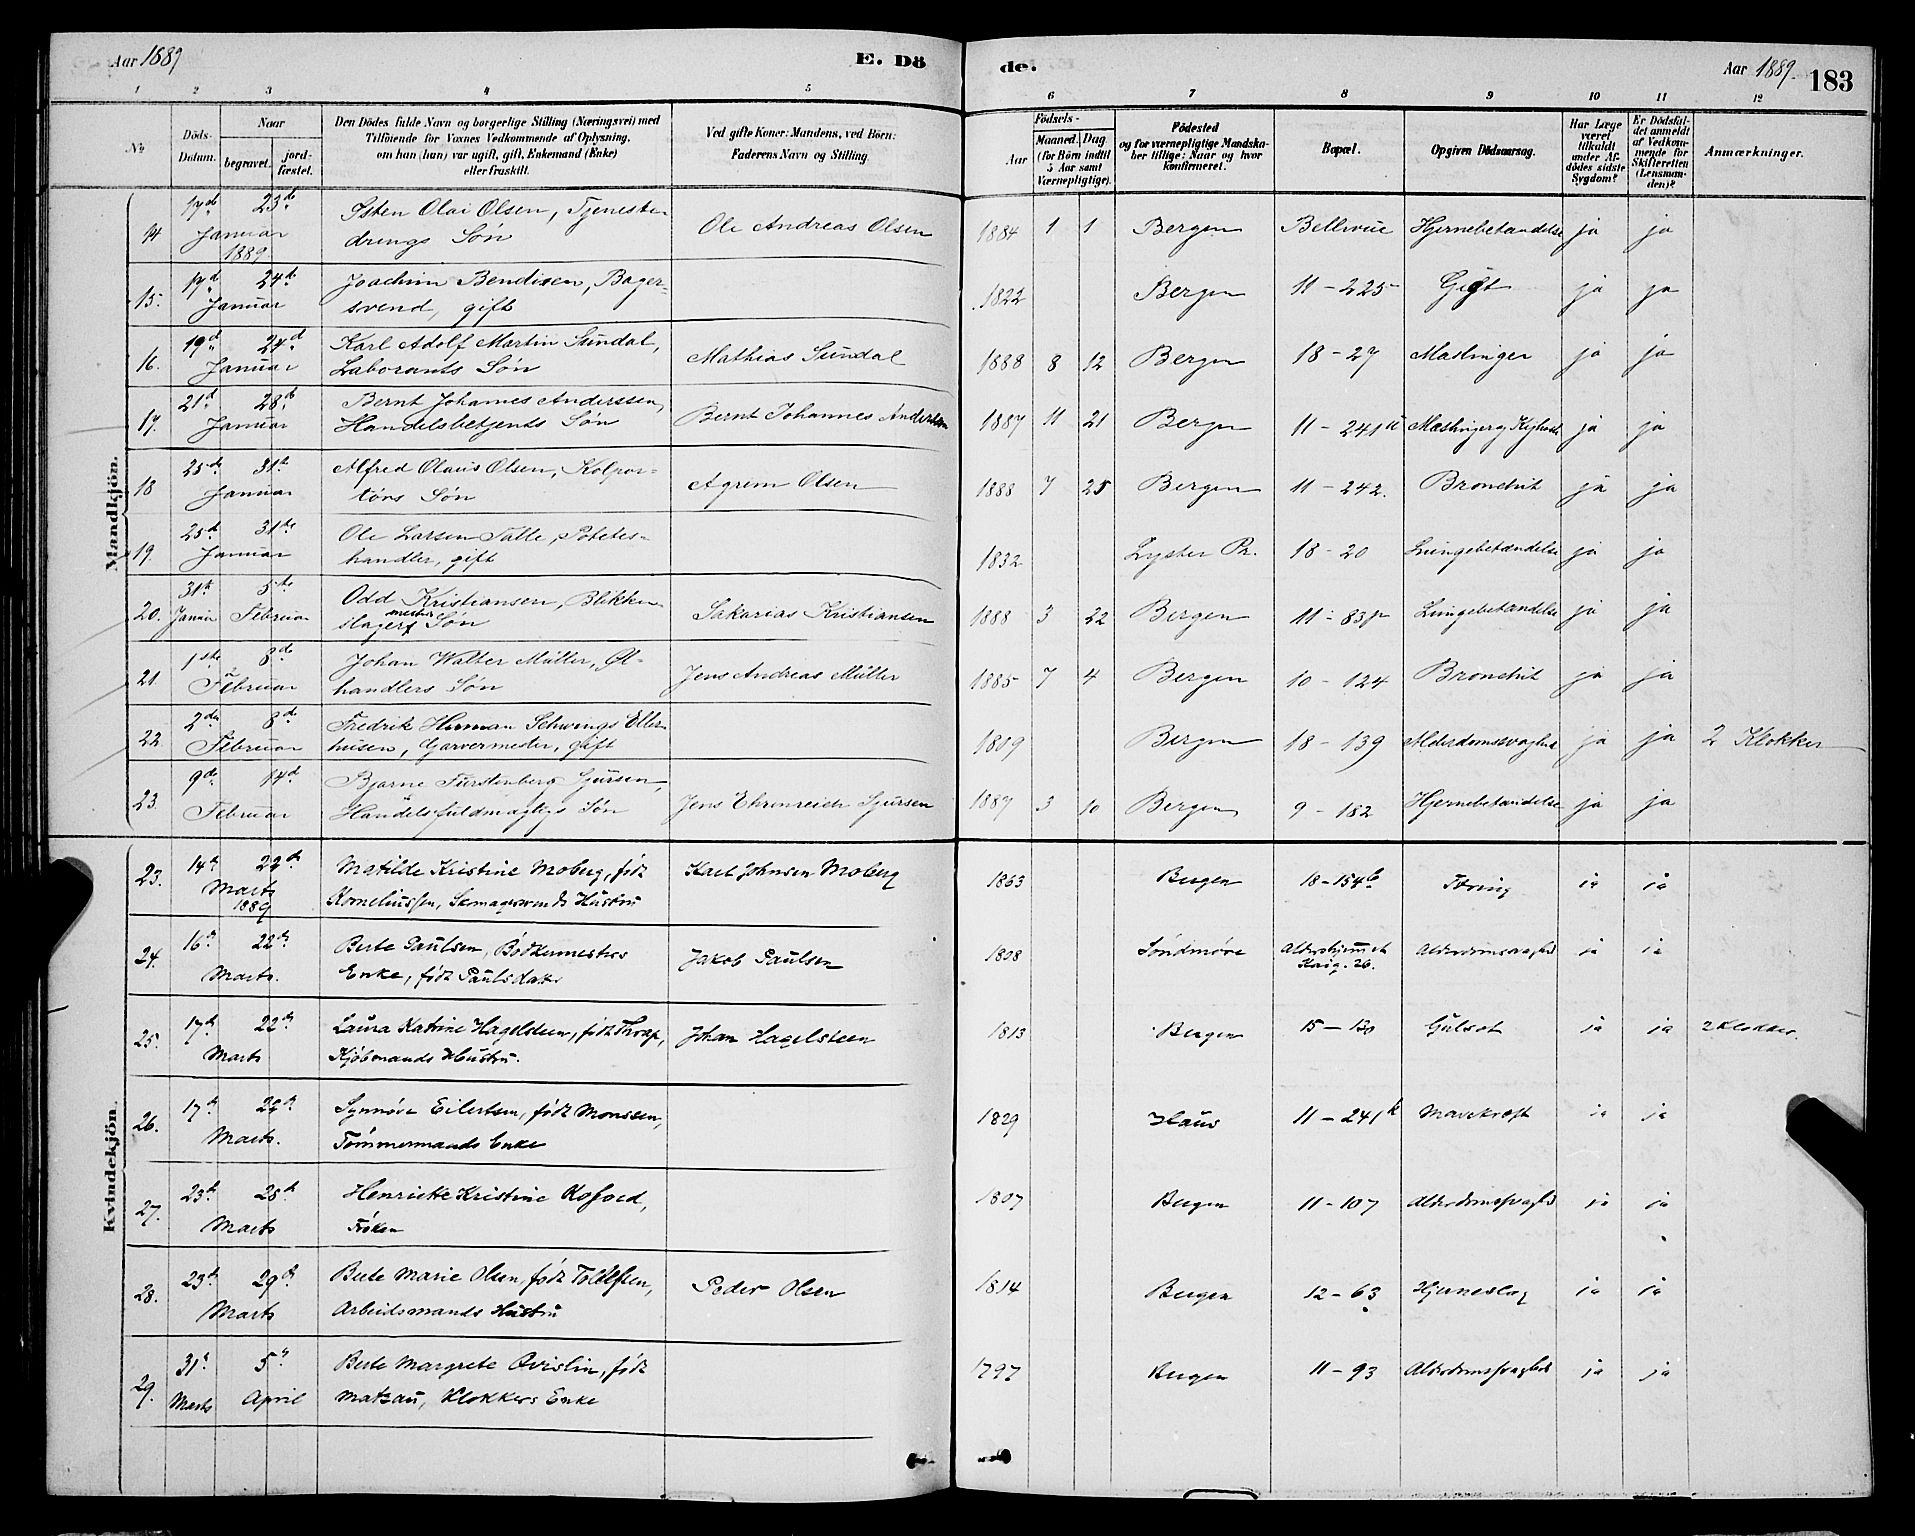 Aar 1889
E. Dö
de.
Aar 1889.
183
1 2 3 4 5 6 7 8 9 10 11 12
No
Döds-Datum.
Naar
begravet.
jordfæstet.
Den Dödes fulde Navn og borgerlige Stilling (Næringsvei) med
Tilföiende for Voxnes Vedkommende af Oplysning,
om han (hun) var ugift, gift, Enkemand (Enke)
eller fraskilt.
Ved gifte Koner: Mandens, ved Börn:
Faderens Navn og Stilling.
Födsels-
Aar
Maaned. Dag.
(for Börn indtil
5 Aar samt
Værnepligtige).
Födested
og for værnepligtige Mandska-
ber tillige: Naar og hvor
konfirmeret.
Bopæl.
Opgiven Dödsaarsag.
Har Læge
været
tilkaldt
under Af-
dödes sidste
Sygdom?
Er Dödsfal-
det anmeldt
af Vedkom-
mende for
Skifteretten
(Lensman-
den)?
Anmærkninger.
Mandkjön.
14 17de Januar 1889 23de Isten Olai Olsen, Tjeneste-
drengs Søn Ole Andreas Olsen 1884 1 1 Bergen Bellevue Hjernebetændelse ja ja
15. 17d Januar 24d Joachim Bendixen, Bager-
svend, gift 1822 Bergen 11-225 Gigt ja ja
16. 19d Januar 24d Karl Adolf Martin Sundal,
Laborants Søn Mathias Sundal 1888 8 12 Bergen 18-27 Mæslinger ja ja
17. 21d Januar 28d Bernt Johannes Anderssen,
Handelsbetjents Søn Bernt Johannes Anderssen 1887 11 21 Bergen 11-241 Mæslinger og Kighoste ja ja
18 25de Januar 31te Alfred Olaus Olsen, Kolpor-
tørs Søn Agrim Olsen 1888 7 25 Bergen 11-242. Bronchit ja ja
19. 25d Januar 31te Ole Larsen Talle, Potetes-
handler, gift 1832 Lyster Pr. 18-20 Lungebetændelse ja ja
20. 31te Januar 5te Februar Odd Kristiansen, Blikken-
slagermesters Søn Sakarias Kristiansen 1888 3 22 Bergen 11-83p Lungebetændelse ja ja
21. 1ste Februar 8de Johan Walter Müller, Øl-
handlers Søn Jens Andreas Müller 1885 7 4 Bergen 10-124 Bronchit ja ja
22 2den Februar 8de Fredrik Herman Schwings Eller-
husen, Garvermester, gift 1809 Bergen 18-139 Alderdomssvaghed ja ja 2 Klokker
23. 9de Februar 14d Bjarne Fürstenberg Sjursen,
Handelsfuldmægtigs Søn Jens Ehrenreich Sjursen 1887 3 10 Bergen 9-182 Hjernebetændelse ja ja
Kvindekjön.
23. 14d Marts 1889 22d Matilde Kristine Moberg, født
Korneliussen, Skomagersvends Hustru Karl Johnsen Moberg 1863 Bergen 18-154b Tæring ja ja
24. 16d Marts. 22d Berte Paulsen, Bødkermesters
Enke, født Paulsdatter Jakob Paulsen 1808 Søndmøre Aldershjemmet
Kaig. 26. Alderdomssvaghed ja ja
25. 17d Marts 22d Laura Katrine Hagelsteen, født Thrap,
Kjøbmands Hustru. Johan Hagelsteen 1813 Bergen 15-130 Gulsot ja ja 2 Klokker.
26. 17d Marts. 22d Synnøve Eilertsen, født Monssen,
Tømmermands Enke 1829 Haus 11-241k Mavekræft ja ja
27. 23d Marts 28d Henriette Kristine Kofoed,
Frøken 1807 Bergen 11-107 Alderdomssvaghed ja ja
28. 23d Marts 29d Berte Marie Olsen, født Tollefsen,
Arbeidsmands Hustru Peder Olsen 1814 Bergen 12-63 Hjerneslag ja ja
29. 31' Marts 5' April Berte Margrete Qvislin, født
Matzau, Klokkers Enke 1797 Bergen 11-93 Alderdomssvaghed ja ja